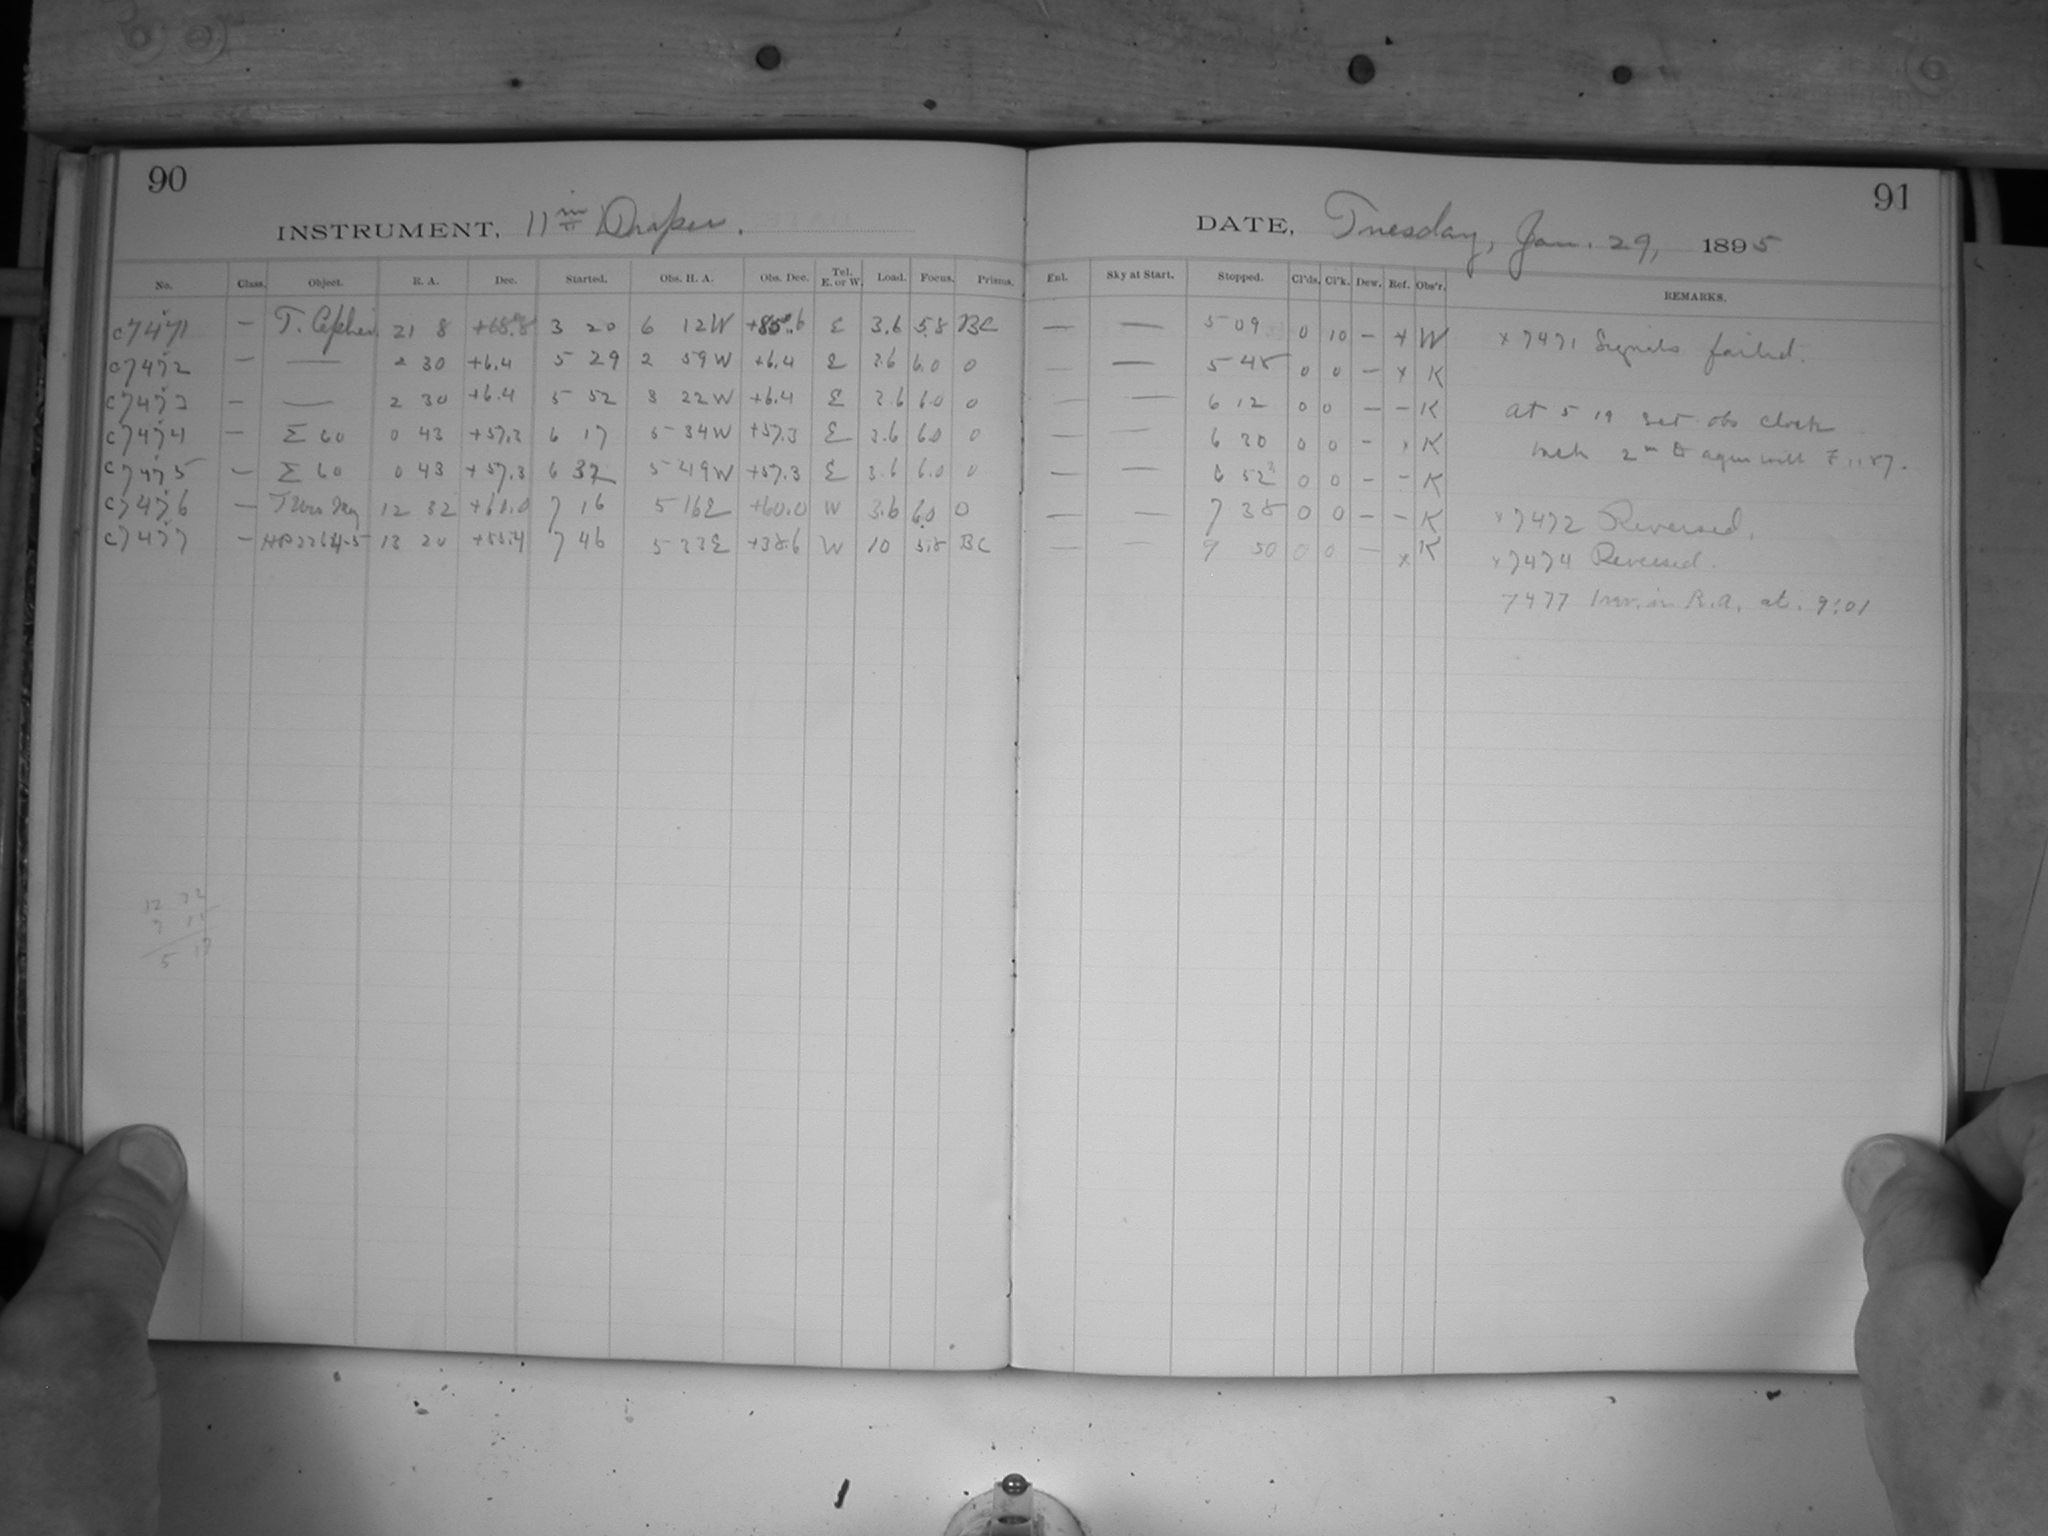 90
INSTRUMENT, 11 in Draper.
No. Class. Object. R. A. Dec. Started. Obs. H. A. Obs. Dec. Tel. E. or W. Load. Focus. Prisms.
c7471 — T. Cephei 21 8 +68.8 3 20 6 12W +85.6 E 3.6 5.8 BC
c7472 — — 2 30 +6.4 5 29 2 59W +6.4 E 3.6 6.0 0
c7473 — — 2 30 +6.4 5 52 3 22W +6.4 E 3.6 6.0 0
c7474 — Σ 60 0 43 +57.3 6 17 5 34W +57.3 E 3.6 6.0 0
c7475 — Σ 60 0 43 +57.3 6 32 5 49W +57.3 E 3.6 6.0 0
c7476 — 12 32 +60.0 7 16 5 16E +60.0 W 3.6 6.0 0
c7477 — 13 20 +55.4 7 46 5 33E +38.6 W 10 5.8 BC
12 32
5 17
91
DATE, Tuesday, Jan. 29, 1895
Enl. Sky at Start. Stopped. Cl'ds. Cl'k. Dew. Ref. Obs'r. REMARKS.
— — 5 09 0 10 — x W
— — 5 48 0 0 — x K
— — 6 12 0 0 — — K
— — 6 30 0 0 — x K
— — 6 52 0 0 — — K
— — 7 38 0 0 — — K
— — 9 50 0 0 — x K
x 7471 Signals failed.
at 5 19 set obs clock
back 2m to agree with
x 7472 Reversed.
x 7474 Reversed.
7477 Inv. in R.A. at. 9:01